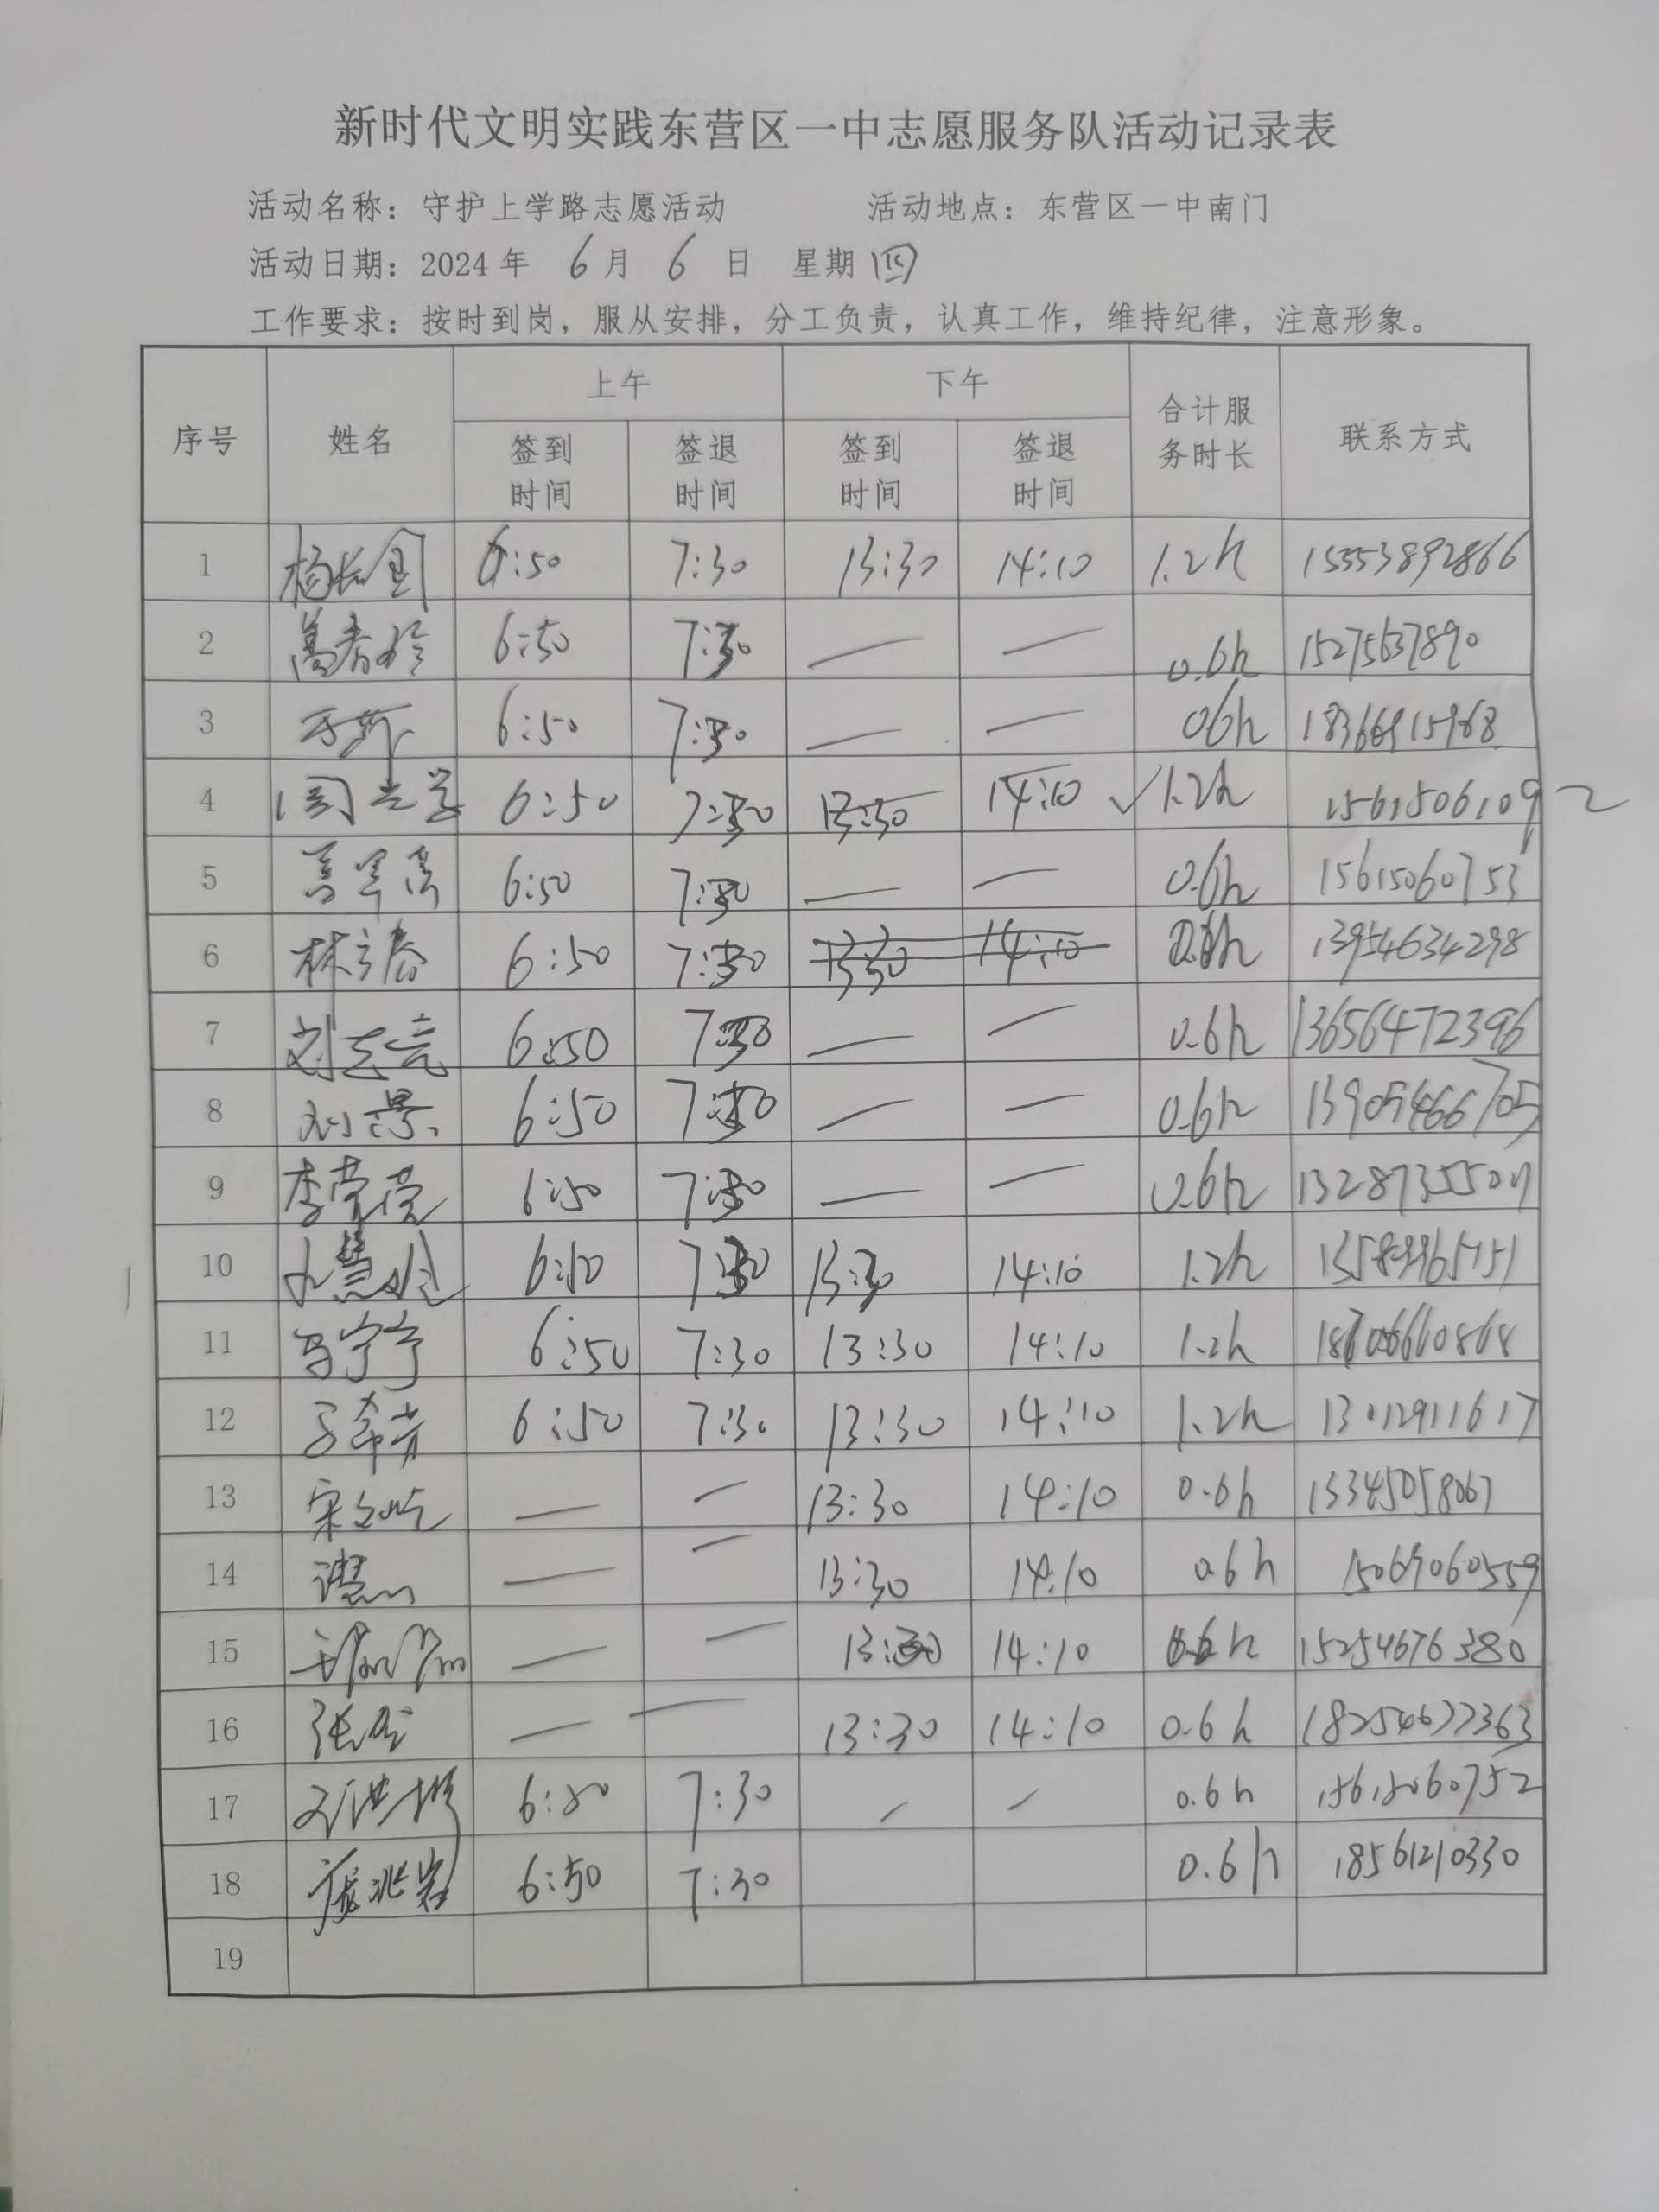 新时代文明实践东营区一中志愿服务队活动记录表
活动名称：守护上学路志愿活动 活动地点：东营区一中南门
活动日期：2024年 6月 6日 星期四
工作要求：按时到岗，服从安排，分工负责，认真工作，维持纪律，注意形象。
序号 姓名 上午 下午 合计服务时长 联系方式
签到时间 签退时间 签到时间 签退时间
1 6:50 7:30 13:30 14:10 1.2h 15553892866
2 高春玲 6:50 7:30 — — 0.6h 15275637890
3 6:50 7:30 — — 0.6h
4 6:50 7:30 13:30 14:10 ✓1.2h 15615061092
5 6:50 7:30 — — 0.6h 15615060753
6 林立春 6:50 7:30 13:30 14:10 0.6h 13954634298
7 刘志亮 6:50 7:30 — — 0.6h 13656472396
8 刘景 6:50 7:30 — — 0.6h 13905466705
9 李莹莹 6:50 7:30 — — 0.6h
10 6:50 7:30 13:30 14:10 1.2h
11 马宁宁 6:50 7:30 13:30 14:10 1.2h
12 6:50 7:30 13:30 14:10 1.2h 13012911617
13 — — 13:30 14:10 0.6h 13345058067
14 — — 13:30 14:10 0.6h 15069060559
15 — — 13:30 14:10 0.6h 15254676380
16 — — 13:30 14:10 0.6h 18254677363
17 6:50 7:30 — — 0.6h 15615060752
18 庞兆岩 6:50 7:30 0.6h 18561210330
19